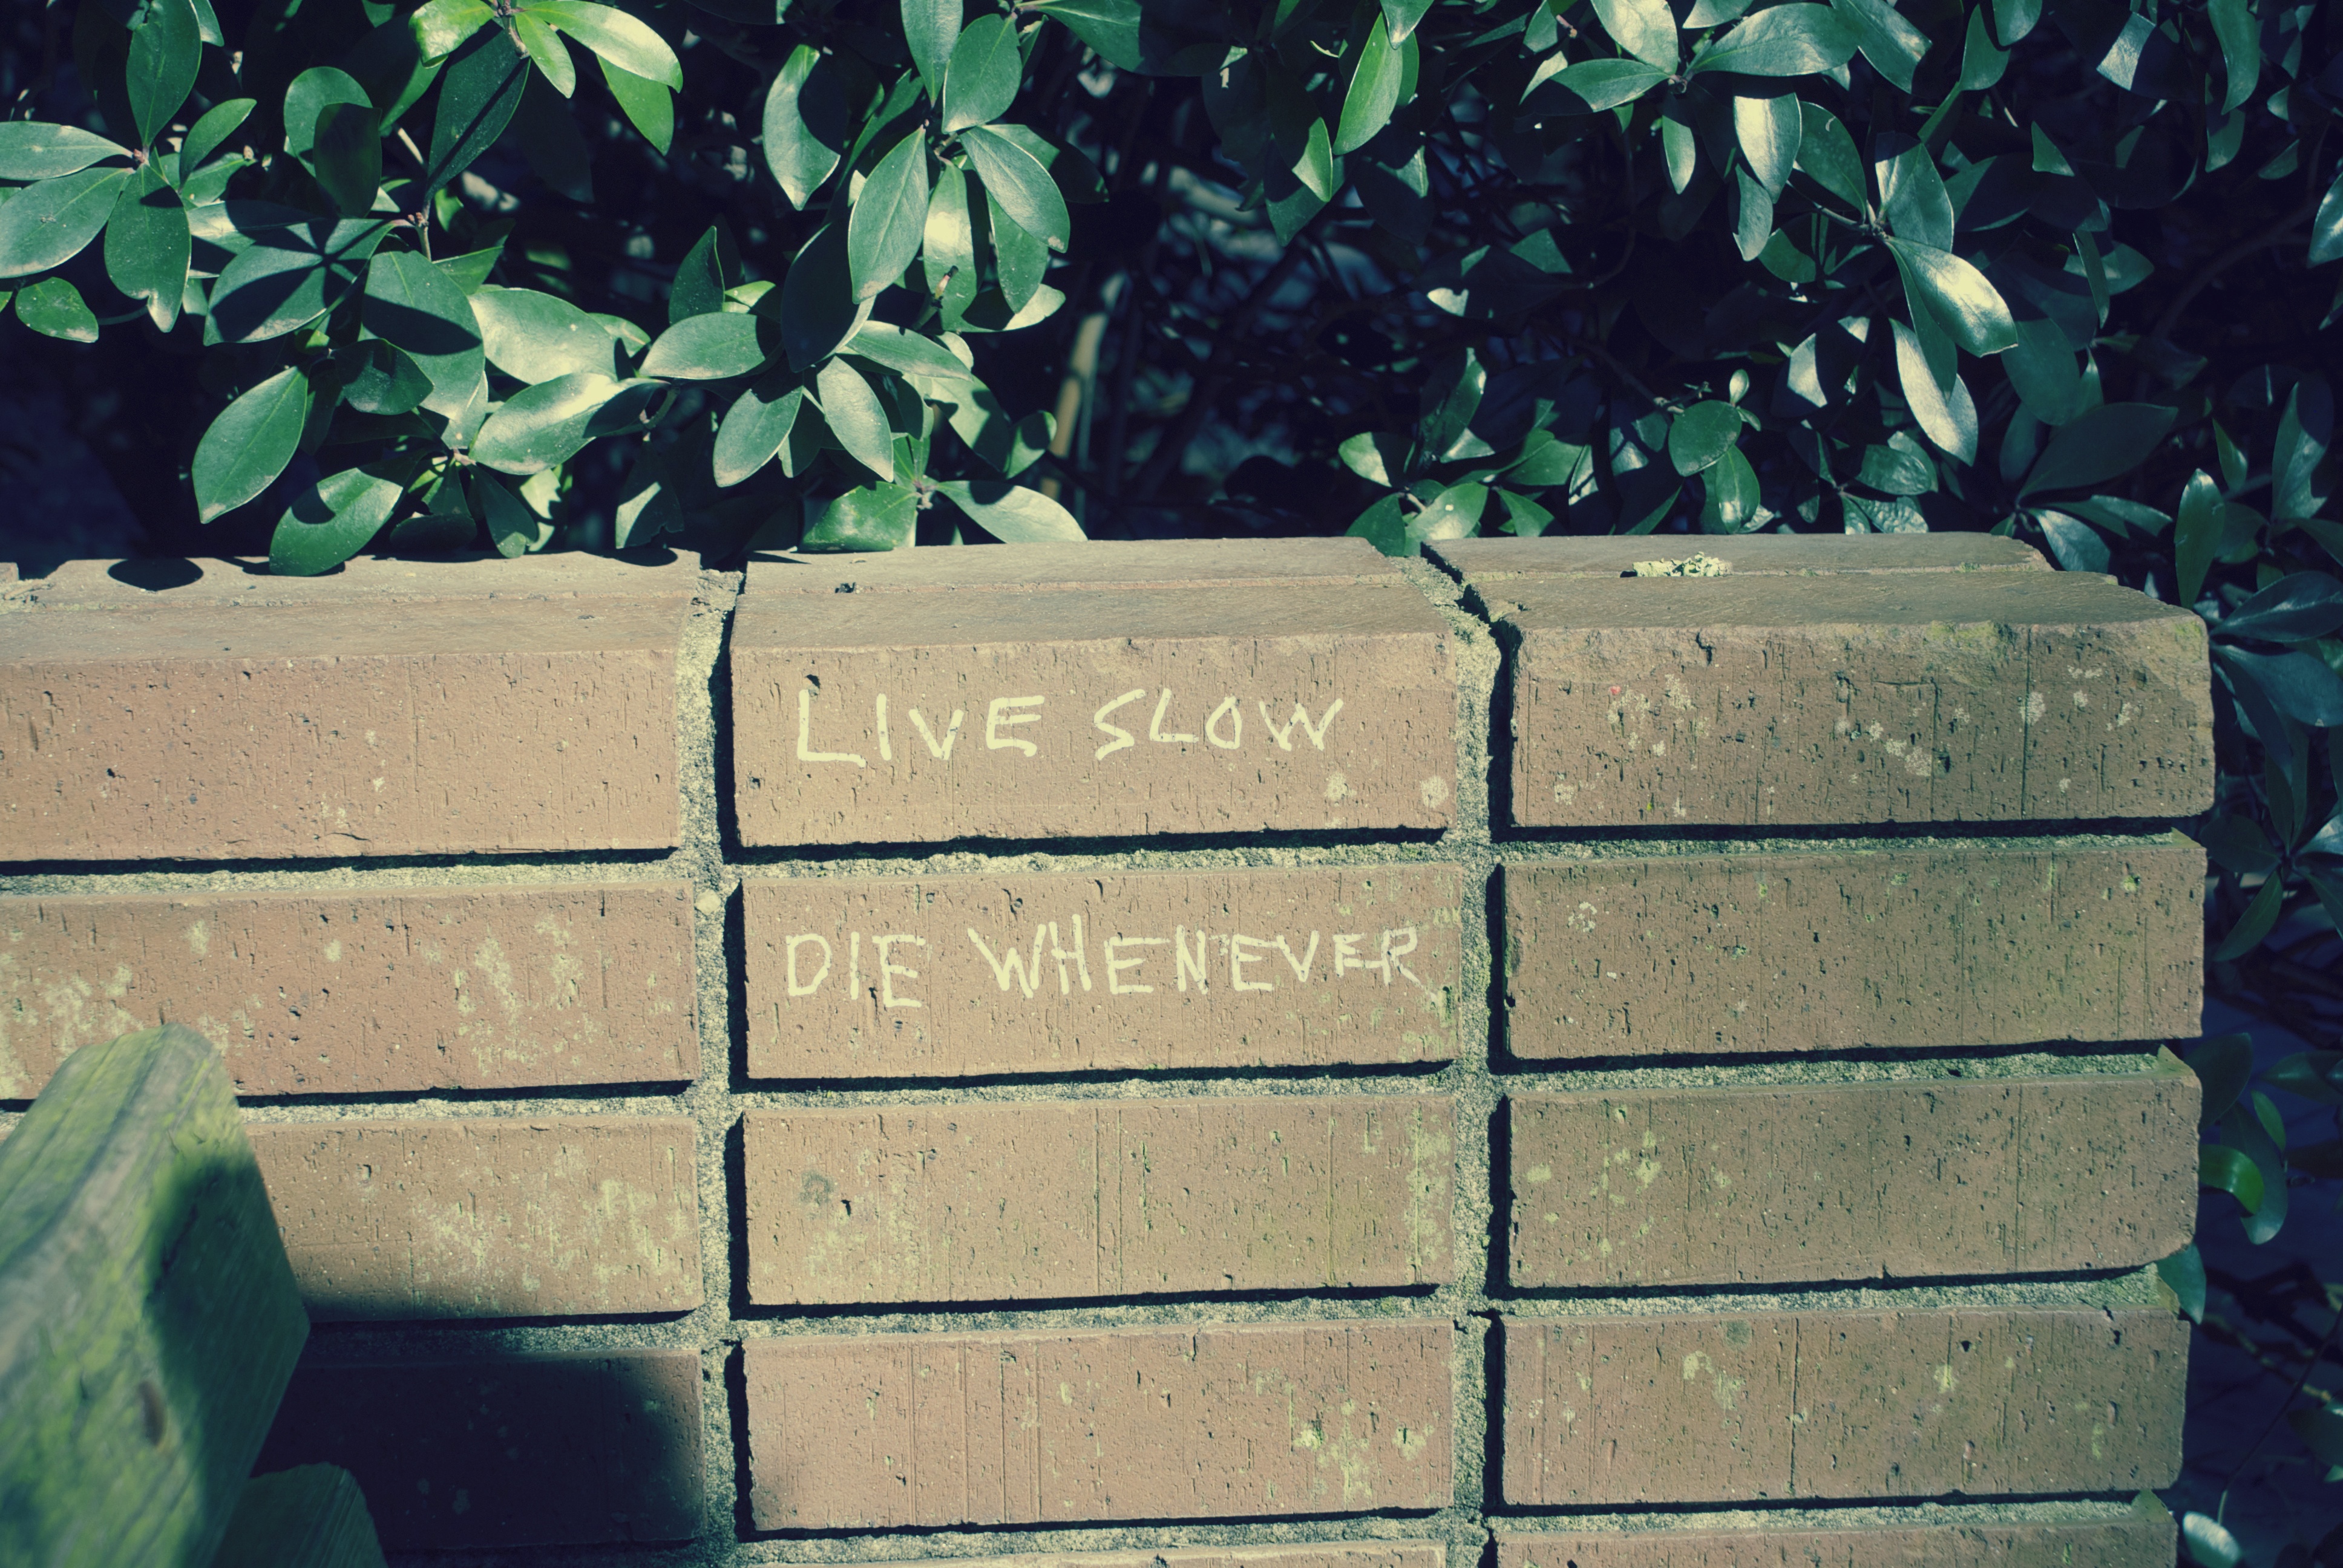 LIVE SLOW
DIE WHENEVER